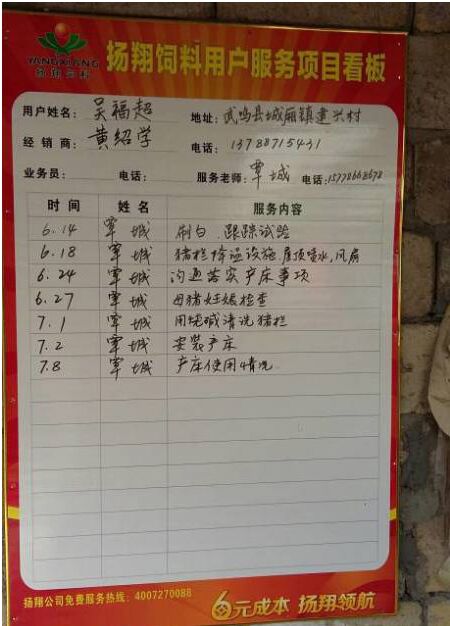 YANGXIANG
扬翔饲料
扬翔饲料用户服务项目看板
用户姓名: 吴福超 地址: 武鸣县城厢镇建兴村
经销商: 黄绍学 电话: 13788715431
业务员: 电话: 服务老师: 覃城 电话: 15778668678
时间 姓名 服务内容
6.14 覃城 刷白.跟踪试验
6.18 覃城 猪栏降温设施,屋顶喷水,风扇
6.24 覃城 沟通落实产床事项
6.27 覃城 母猪妊娠检查
7.1 覃城 用烧碱清洗猪栏
7.2 覃城 安装产床
7.8 覃城 产床使用情况
扬翔公司免费服务热线: 4007270088
6元成本 扬翔领航